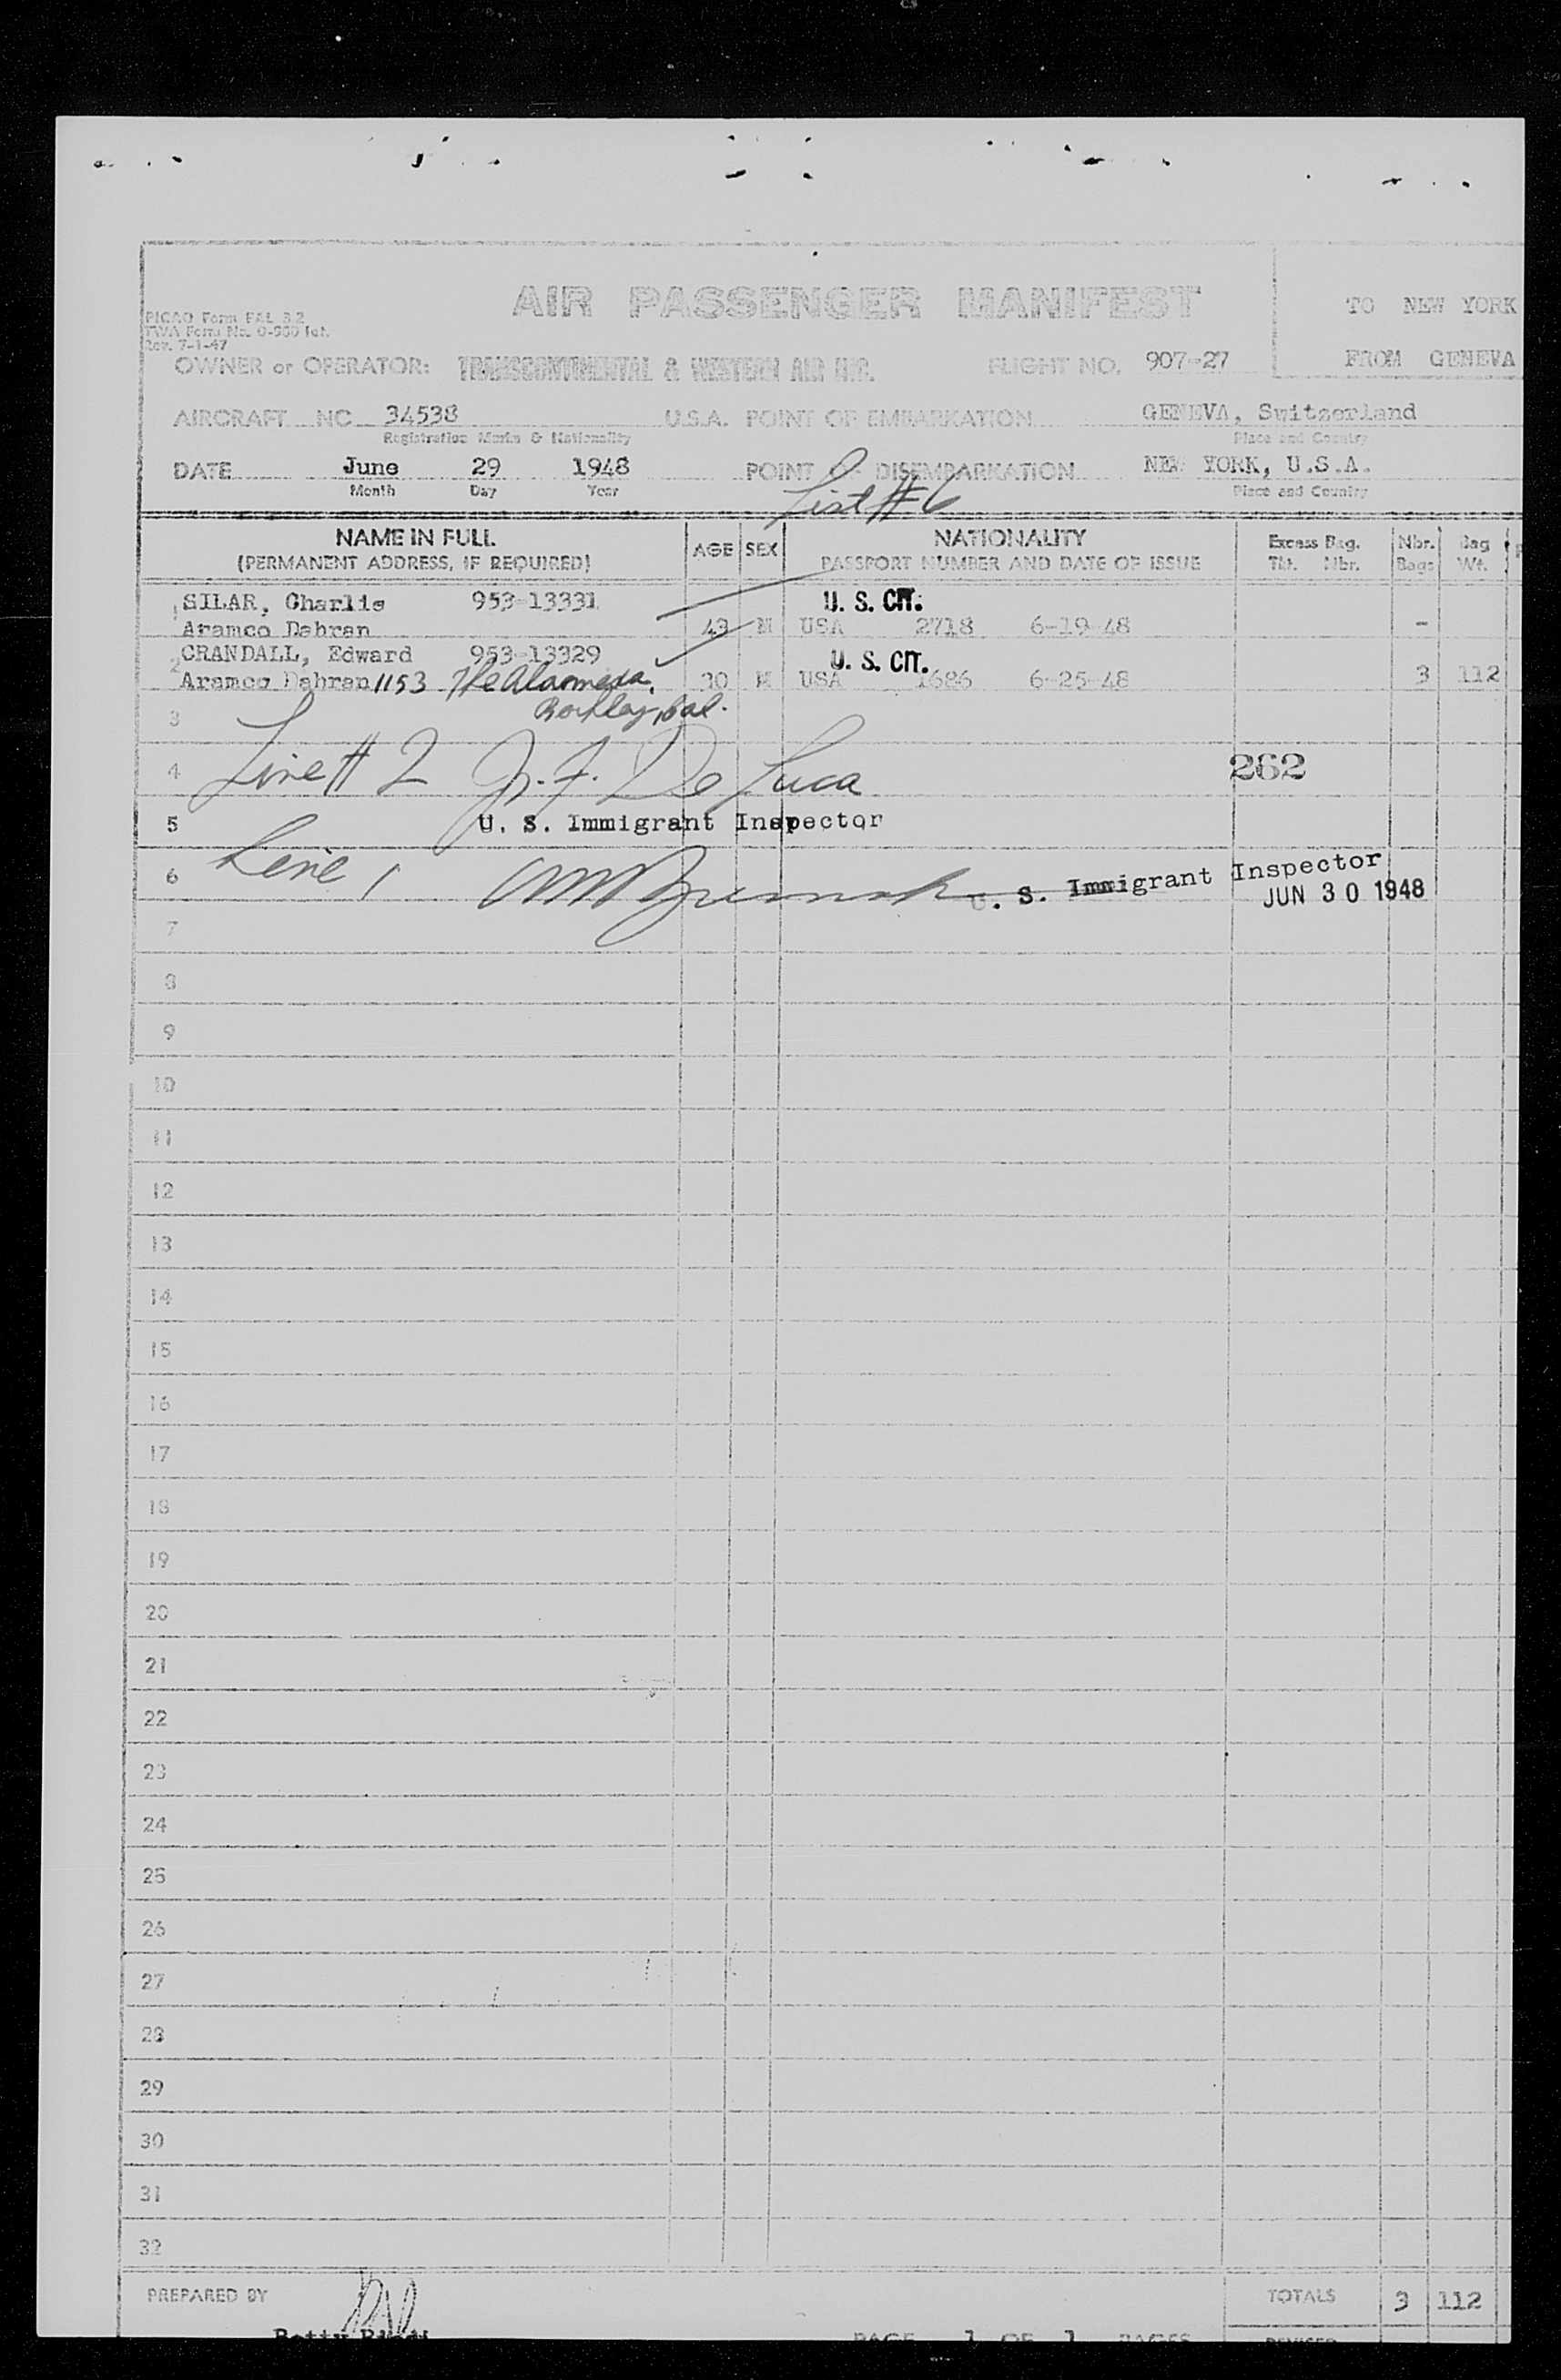 AIR PASSENGER MANIFEST
TO NEW YORK
PICAO Form FAL 3.2
TWA Form No. 0-980 Int.
Rev. 7-1-47
OWNER or OPERATOR: TRANSCONTINENTAL & WESTERN AIR INC. FLIGHT NO. 907-27 FROM GENEVA
AIRCRAFT NC 34538 U.S.A. POINT OF EMBARKATION GENEVA, Switzerland
Registration Marks & Nationality Place and Country
DATE June 29 1948 POINT OF DISEMBARKATION NEW YORK, U.S.A.
Month Day Year Place and Country
List # 6
NAME IN FULL AGE SEX NATIONALITY Excess Bag. Nbr. Bag
(PERMANENT ADDRESS, IF REQUIRED) PASSPORT NUMBER AND DATE OF ISSUE Tkt. Nbr. Bags Wt.
1 SILAR, Charlis 953-13331 U. S. CIT.
Aramco Dahran 43 M USA 2718 6-19-48 -
2 CRANDALL, Edward 953-13329 U. S. CIT.
Aramco Dahran 1153 The Alameda, 30 M USA 1686 6-25-48 3 112
3 Cal.
4 Line # 2 De Luca 262
5 U. S. Immigrant Inspector
6 Line 1 U. S. Immigrant Inspector
JUN 30 1948
7
8
9
10
11
12
13
14
15
16
17
18
19
20
21
22
23
24
25
26
27
28
29
30
31
32
PREPARED BY TOTALS 3 112
Betty PAGE 1 OF 1 PAGES